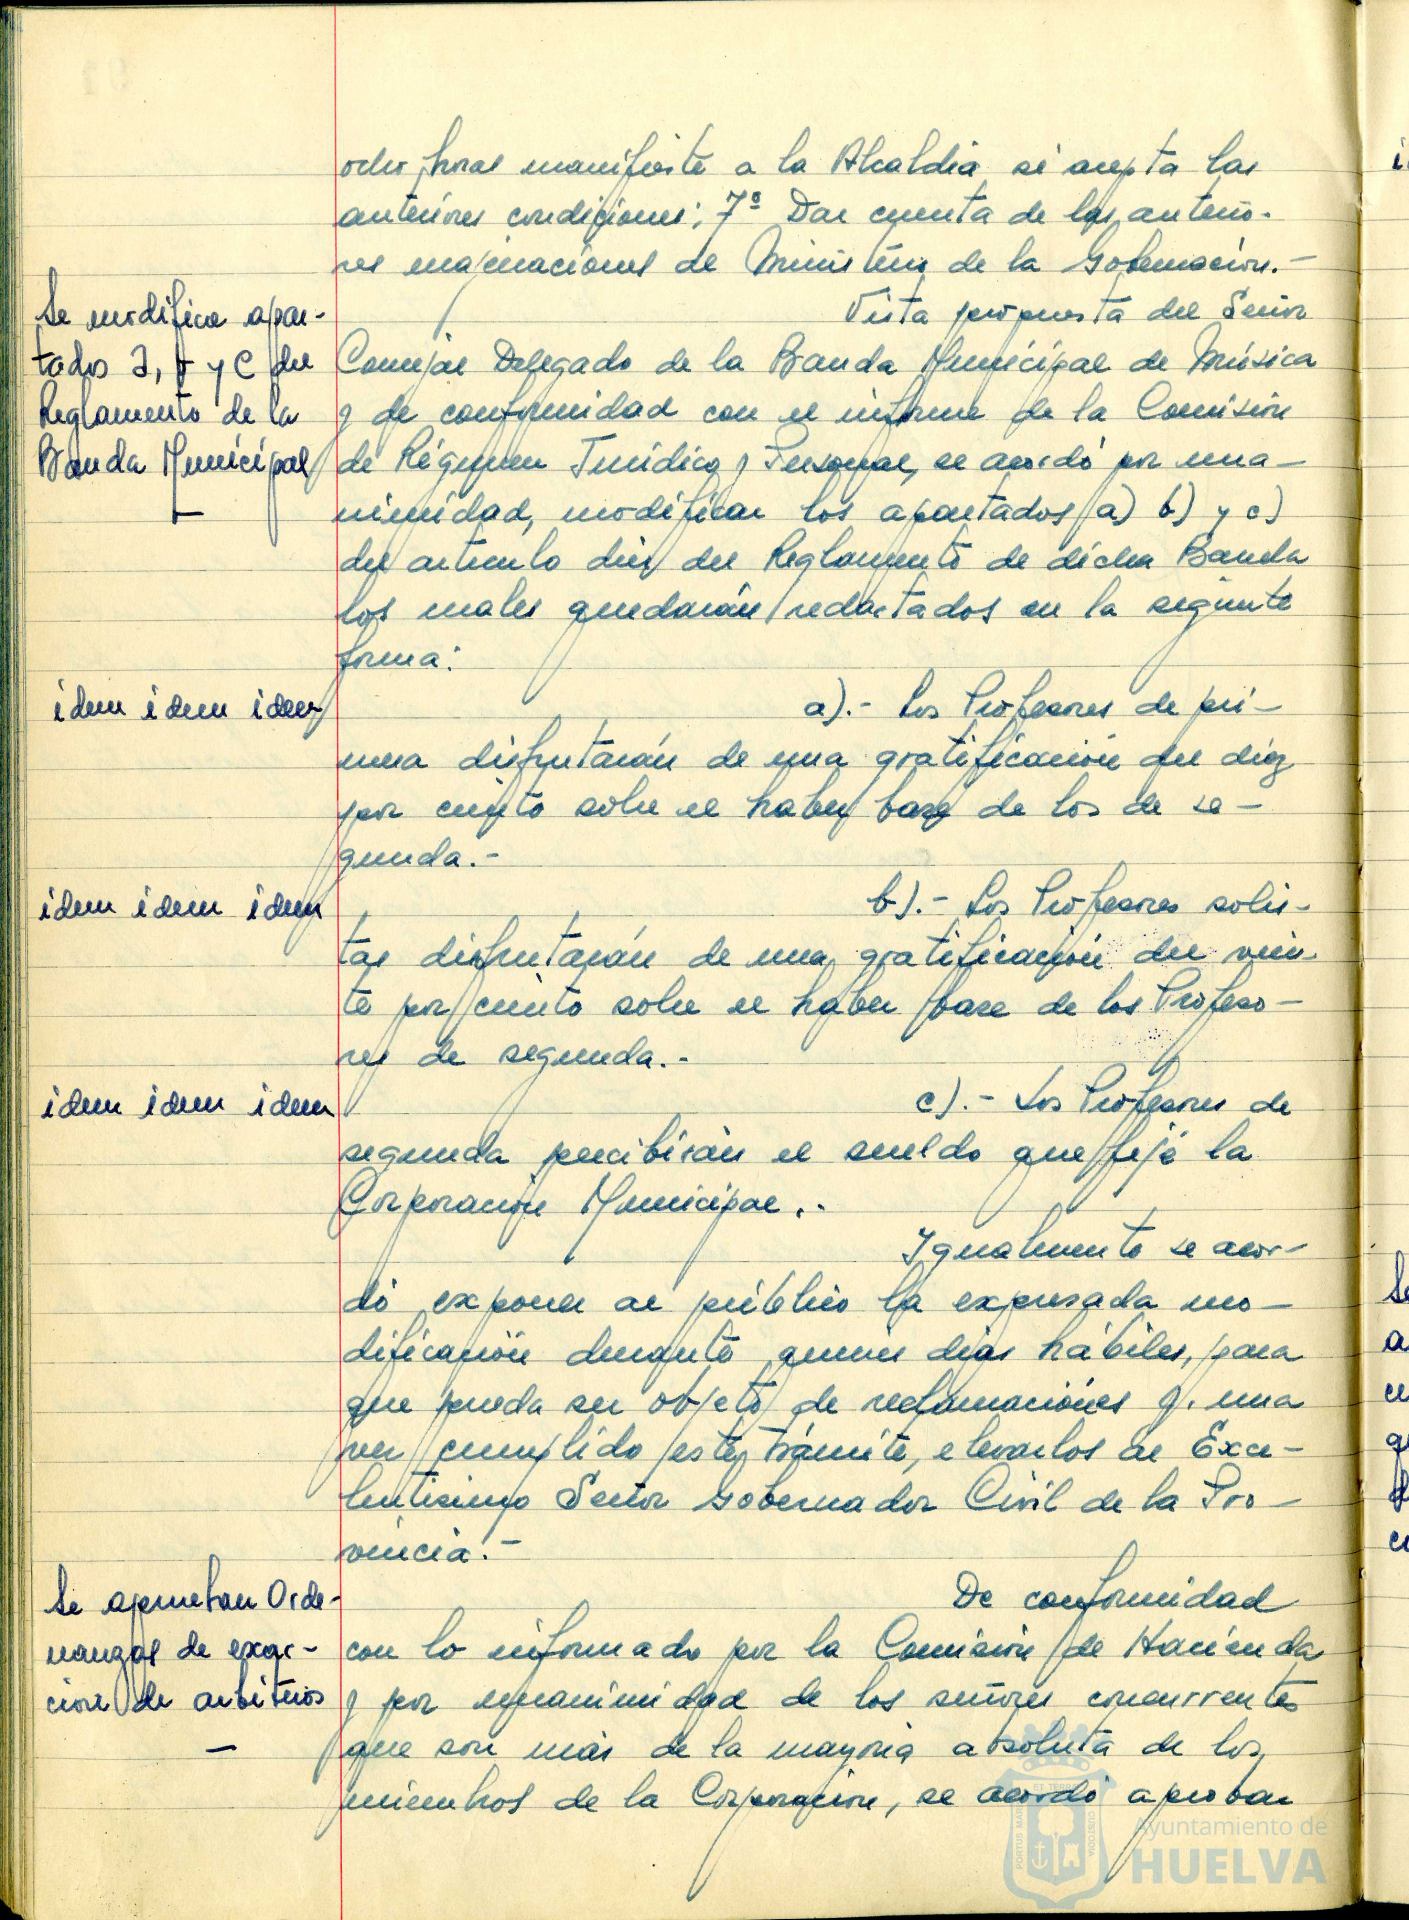 ocho horas manifieste a la Alcaldia si acepta las
anteriores condiciones; 7º Dar cuenta de las anterio-
res enajenaciones al Ministerio de la Gobernación.-
Se modifica apar-
tados a, b y c del
Reglamento de la
Banda Municipal
Vista propuesta del Señor
Concejal Delegado de la Banda Municipal de Música
y de conformidad con el informe de la Comisión
de Régimen Jurídico y Personal, se acordó por una-
nimidad, modificar los apartados a) b) y c)
del articulo diez del Reglamento de dicha Banda
los cuales quedarán redactados en la siguiente
forma:
idem idem idem
a).- Los Profesores de pri-
mera disfrutarán de una gratificación del diez
por ciento sobre el haber base de los de se-
gunda.-
idem idem idem
b).- Los Profesores solis-
tas disfrutarán de una gratificación del vein-
te por ciento sobre el haber base de los Profeso-
res de segunda.-
idem idem idem
c).- Los Profesores de
segunda percibirán el sueldo que fije la
Corporación Municipal.-
Igualmente se acor-
dó exponer al público la expresada mo-
dificación durante quince dias hábiles, para
que pueda ser objeto de reclamaciones y, una
vez cumplido este trámite, elevarlos al Exce-
lentisimo Señor Gobernador Civil de la Pro-
vincia.-
Se aprueban Orde-
nanzas de exac-
cion de arbitrios
De conformidad
con lo informado por la Comisión de Hacienda
y por unanimidad de los señores concurrentes
que son más de la mayoria absoluta de los
miembros de la Corporación, se acordó aprobar
Ayuntamiento de
HUELVA